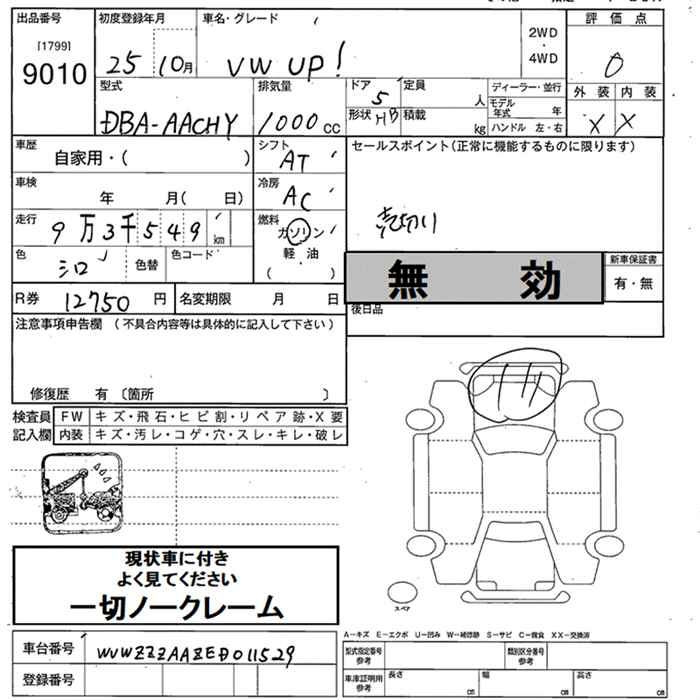 出品番号 初度登録年月 車名・グレード 2WD・4WD 評価点
[1799]
9010 25 10月 VW UP! 0
型式 排気量 ドア 5 定員 人 ディーラー・並行 外装 内装
DBA-AACHY 1000cc 形状 HB 積載 kg モデル年式 年 X X
ハンドル 左・右
車歴 自家用・( ) シフト AT セールスポイント(正常に機能するものに限ります)
車検 年 月( 日) 冷房 AC
走行 9万3千549km 燃料 ガソリン 売切り
色 シロ 色替 色コード 軽・油 ( ) 無効 新車保証書
有・無
R券 12750円 名変期限 月 日 後日品
注意事項申告欄 (不具合内容等は具体的に記入して下さい)
修復歴 有〔箇所 〕
検査員 FW キズ・飛石・ヒビ割・リペア跡・X要
記入欄 内装 キズ・汚レ・コゲ・穴・スレ・キレ・破レ
現状車に付き
よく見てください
一切ノークレーム
スペア
A−キズ E−エクボ U−凹み W−補修跡 S−サビ C−腐食 XX−交換済
車台番号 WVWZZZAAZED011529 型式指定番号 参考 類別区分番号 参考
登録番号 車庫証明用 参考 長さ 幅 高さ